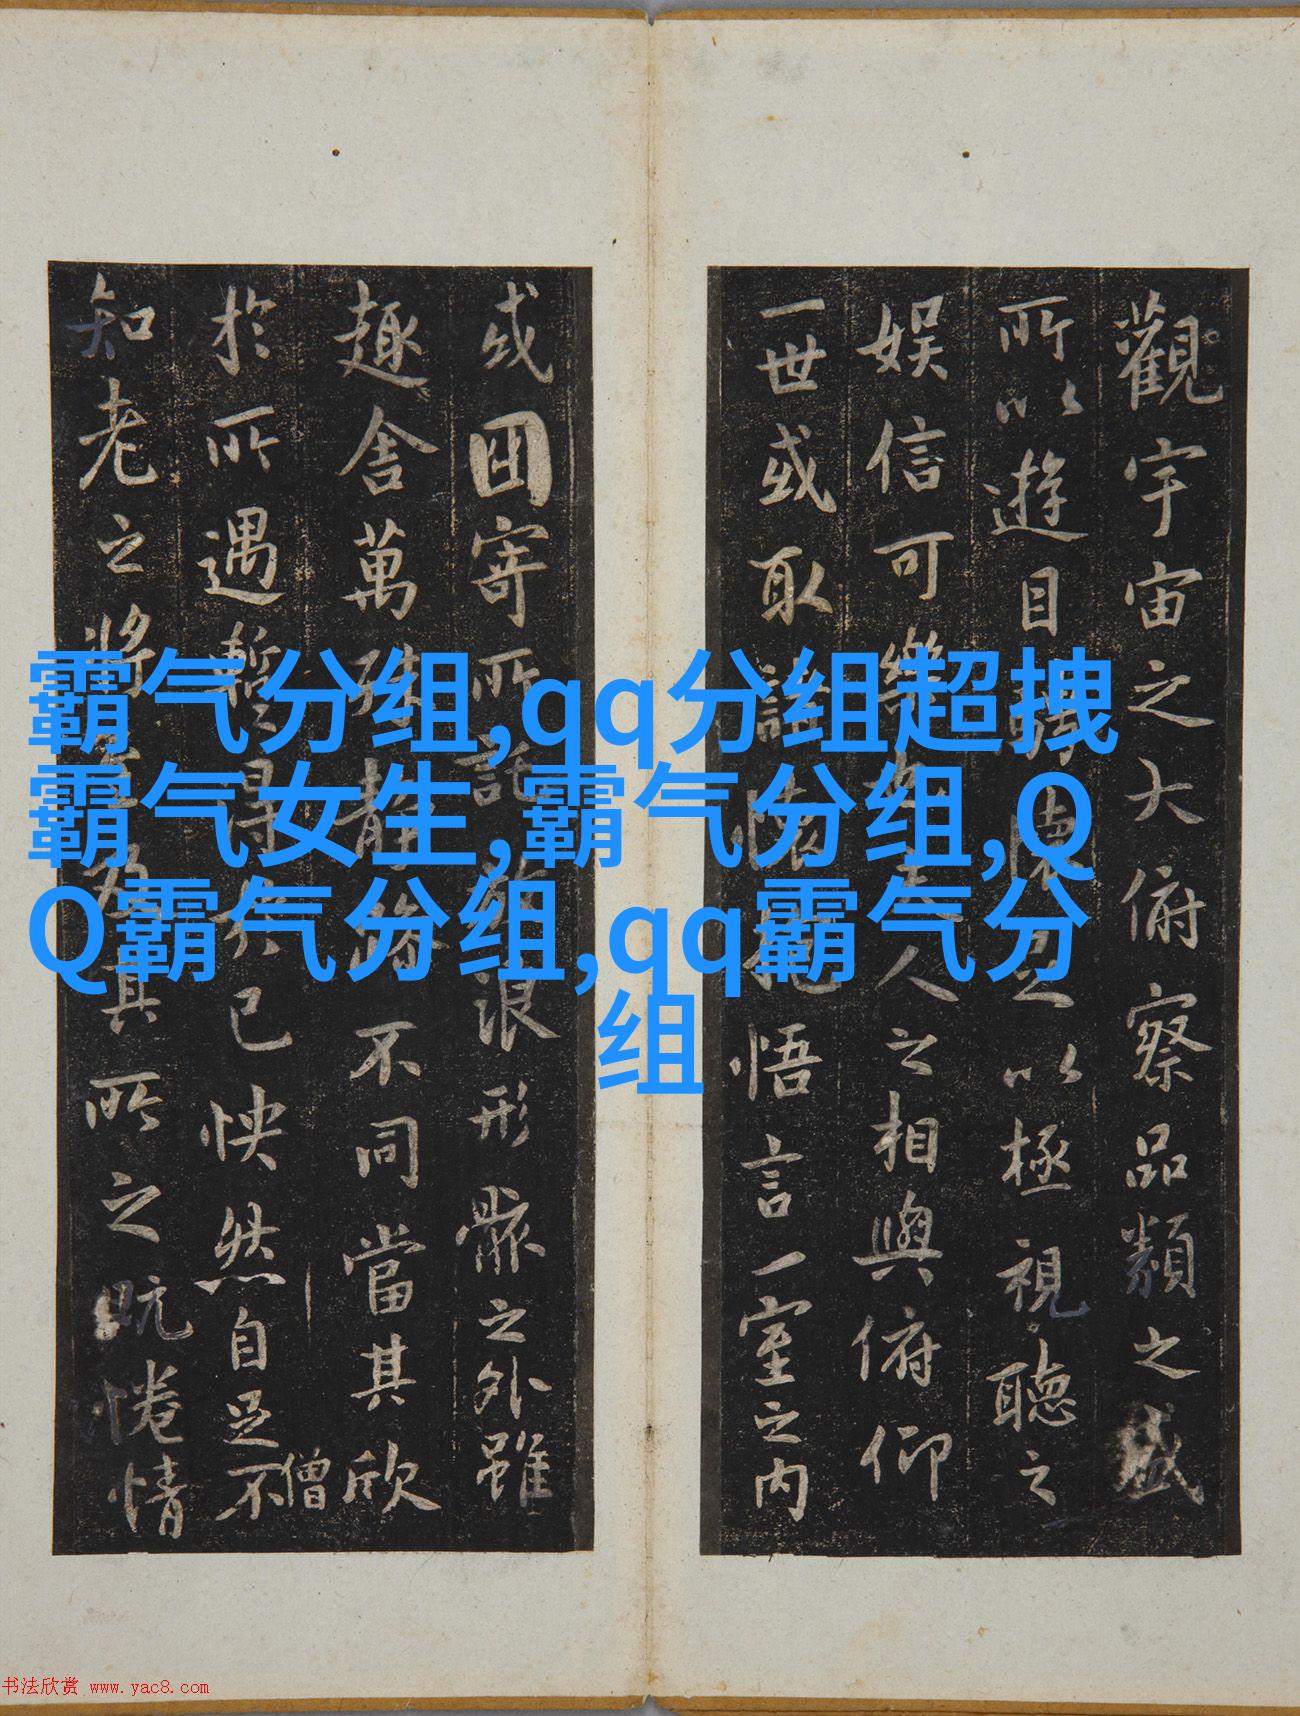 霸气分组,qq分组超拽
霸气女生,霸气分组,Q
Q霸气分组,qq霸气分
组
觀宇宙之大俯察品類之盛
所以遊目騁懷足以極視聽之
娛信可樂也夫人之相與俯仰
一世或取諸懷抱悟言一室之内
或因寄所託放浪形骸之外雖
趣舍萬殊靜躁不同當其欣
於所遇暫得於己怏然自足不
僧
知老之將至及其所之既惓情
书法欣赏 www.yac8.com